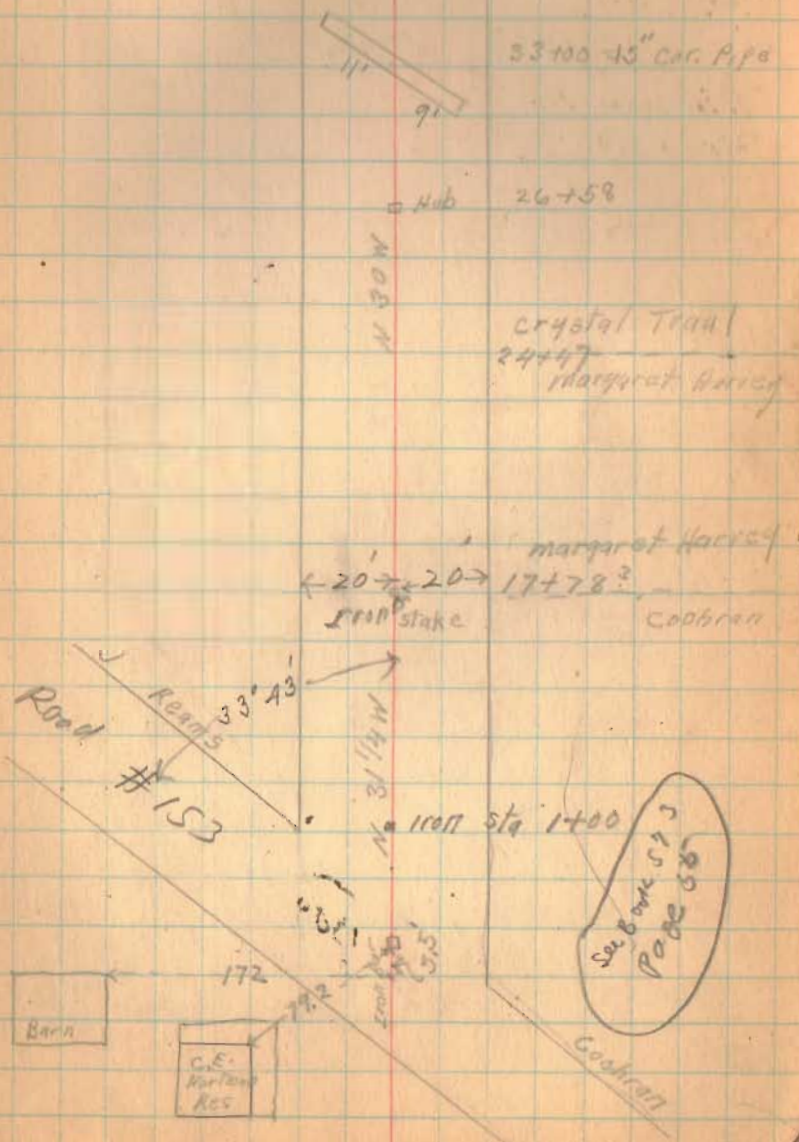 33+00 15" Cor. Pipe
11'
9'
Hub 26+58
N 30 W
Crystal Traul
24+47
Margaret Harvey
Margaret Harvey
20' 20' 17+78
Iron stake
Cochran
33° 43'
Reams
Road
#153
N 31 1/4 W
Iron Sta 1+00
See Book
Page
172
79.2
Iron
Barn
C.E.
Res
Cochran